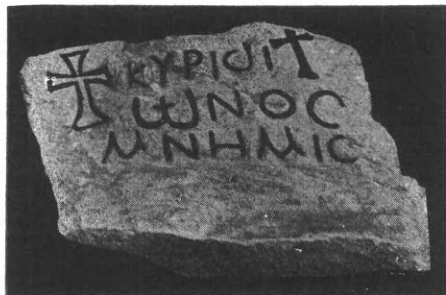 ☩ ΚΥΡΙΛΙ ✝
ΩΝΟϹ
ΜΝΗΜΙϹ